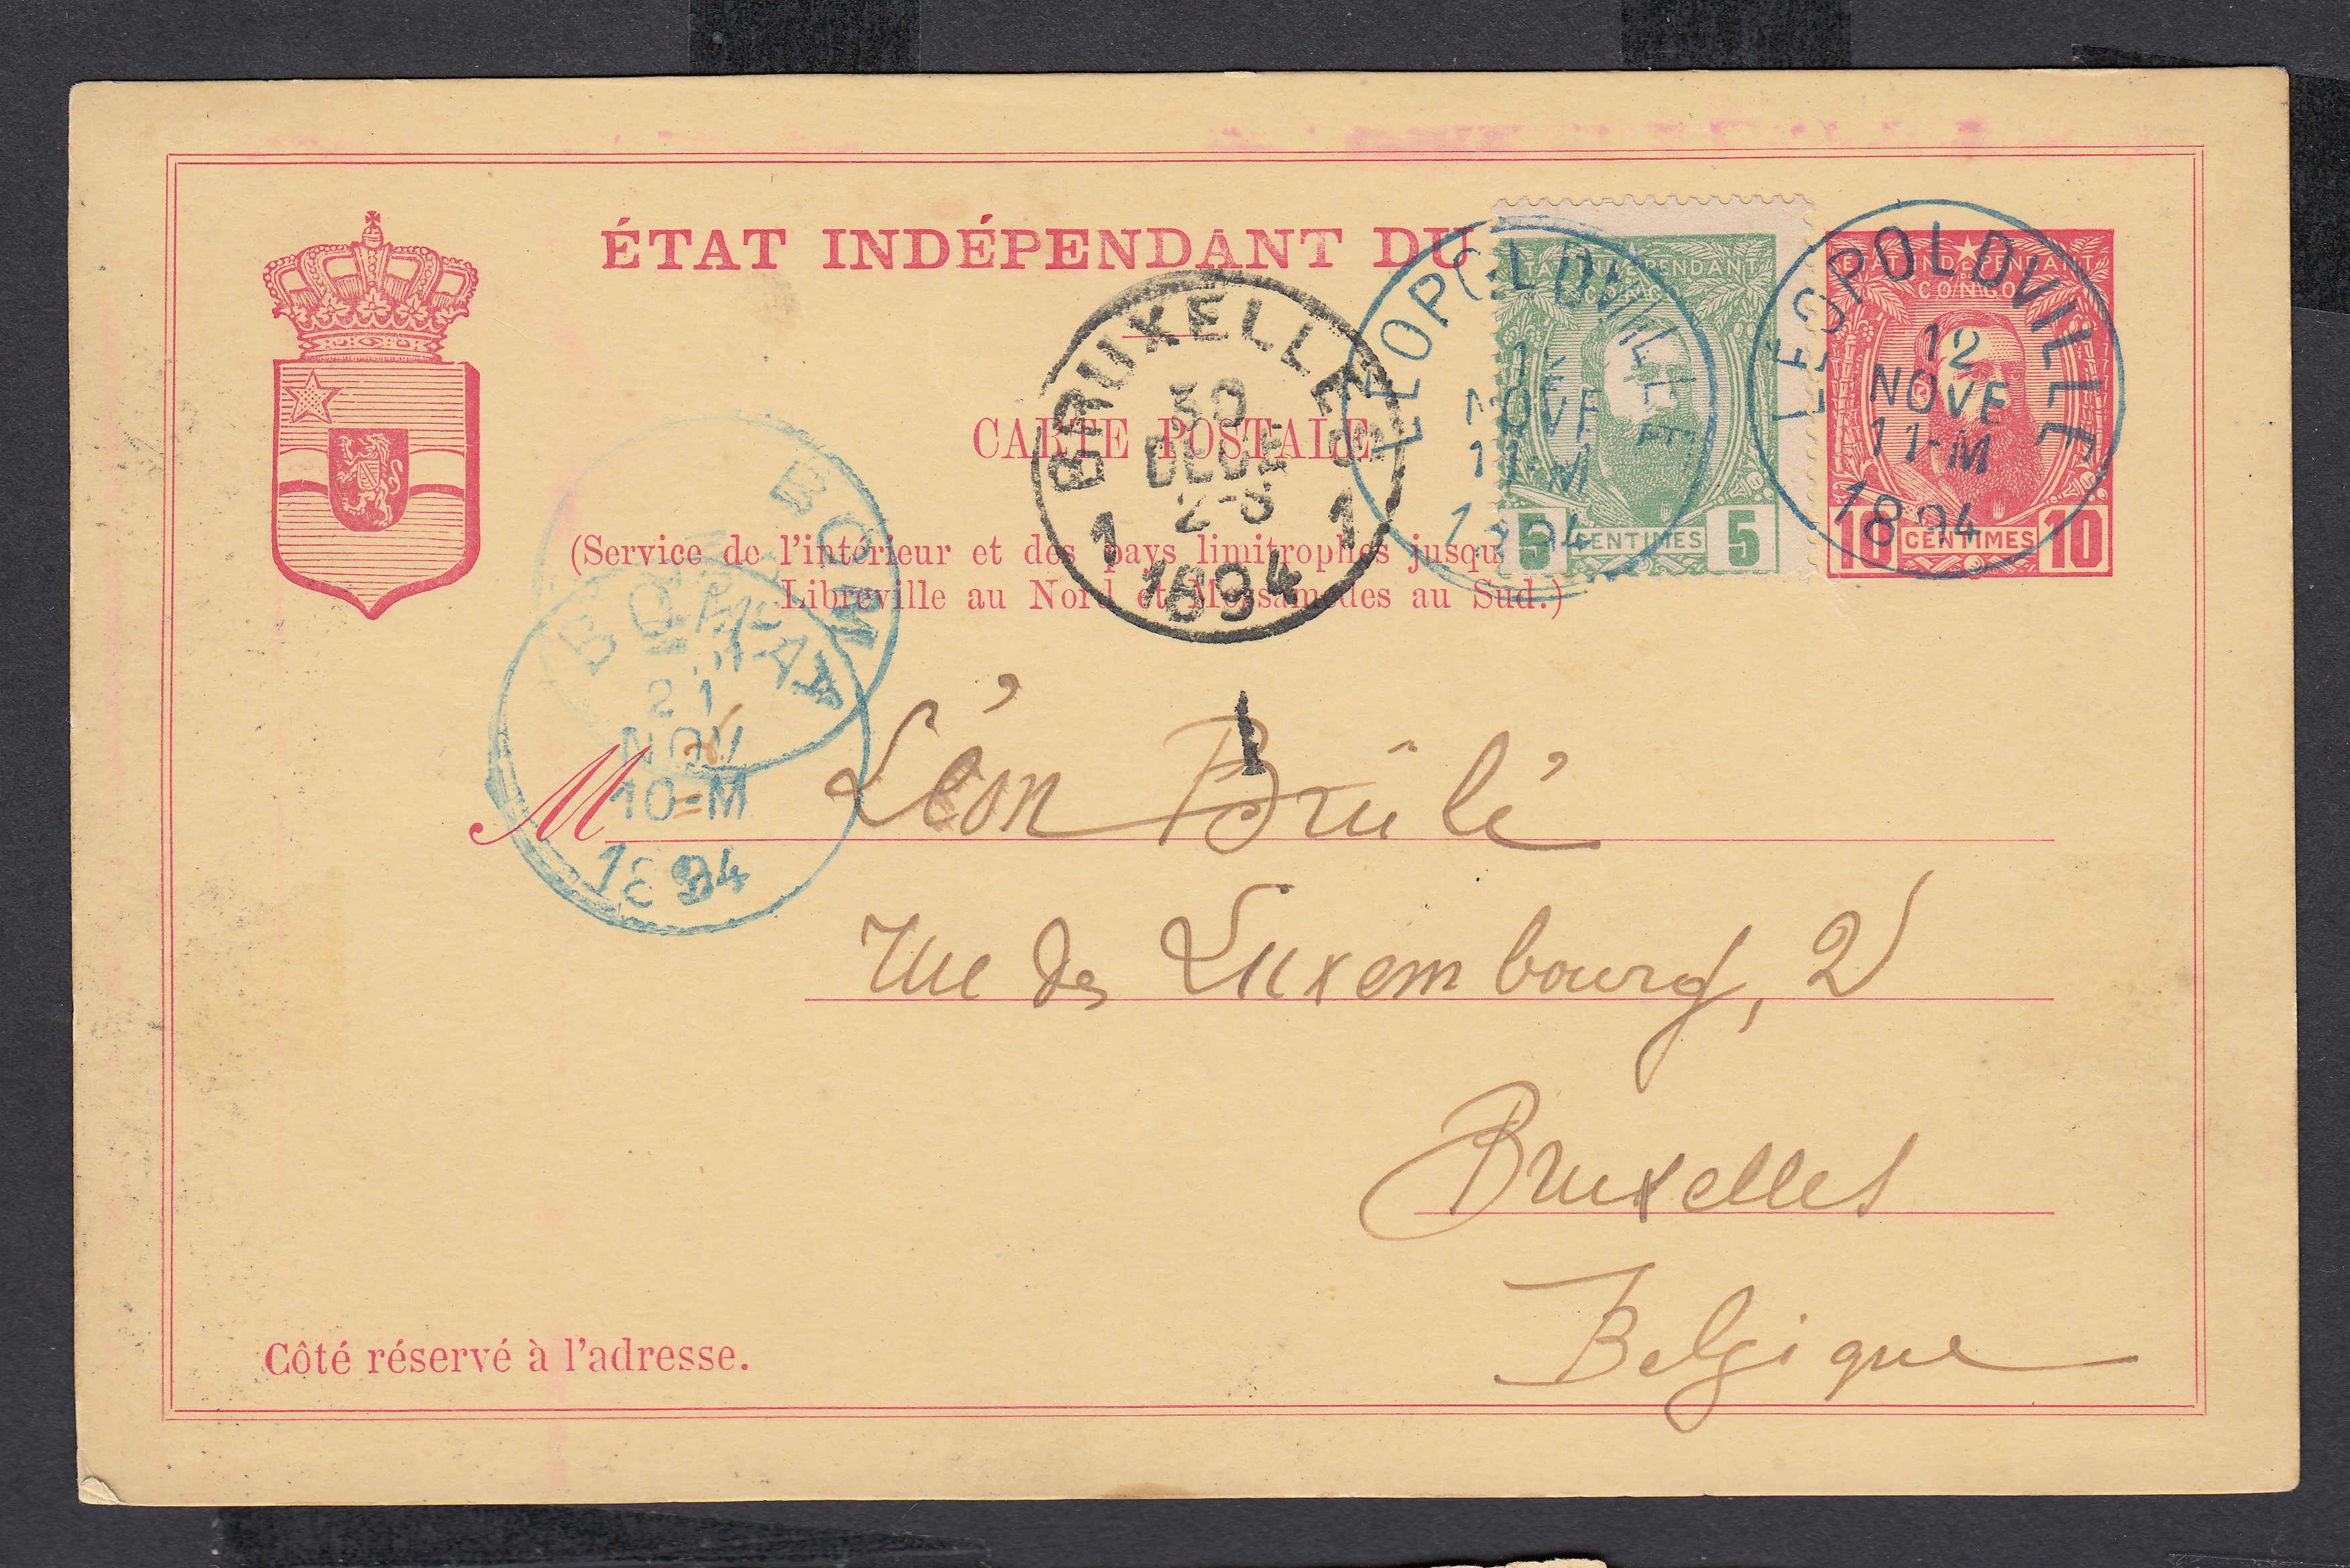 ÉTAT INDÉPENDANT DU
CARTE POSTALE
(Service de l'intérieur et des pays limitrophes jusqu
Libreville au Nord et Mossamedes au Sud.)
ÉTAT INDÉPENDANT
CONGO
5 CENTIMES 5
ÉTAT INDÉPENDANT
DU
CONGO
10 CENTIMES 10
LÉOPOLDVILLE
NOVE
11-M
1894
LÉOPOLDVILLE
12
NOVE
11-M
1894
BRUXELLES
30
DECE
2-3
1 1
1894
BOMA
BOMA
21
NOV
10-M
1894
1
M Léon Brûlé
rue de Luxembourg, 2
Bruxelles
Belgique
Côté réservé à l'adresse.